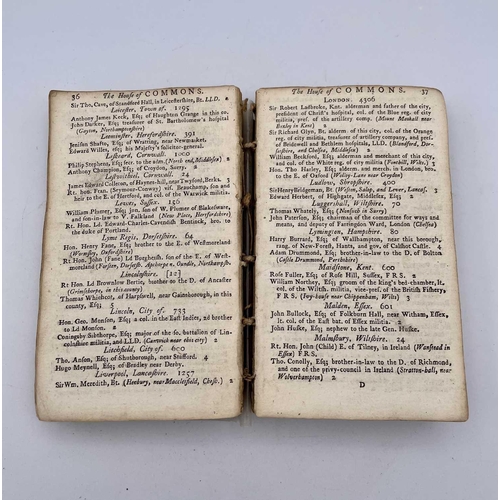 36 The House of COMMONS.
Sir Tho. Cave, of Standford Hall, in Leicestershire, Bt. LLD. 2
Leicester, Town of. 1295
Anthony James Keck, Esq; of Houghton Grange in this co.
John Darker, Esq; treasurer of St. Bartholomew's hospital
(Gayton, Northamptonshire)
Leominster, Herefordshire. 391
Jenison Shafto, Esq; of Wratting, near Newmarket.
Edward Willes, Esq; his Majesty's solicitor-general.
Leskeard, Cornwall. 100
Philip Stephens, Esq; secr. to the adm. (North end, Middlesex) 2
Anthony Champion, Esq; of Croydon, Surry. 2
Lestwithiel, Cornwall. 24
James Edward Colleton, of Haynes-hill, near Twyford, Berks. 3
Rt. hon. Fran. (Seymour-Conway) visc. Beauchamp, son and
heir to the E. of Hertford, and col. of the Warwick militia.
Lewes, Sussex. 156
William Plumer, Esq; jun. son of W. Plumer of Blakesware,
and son-in-law to V. Falkland (New Place, Herefordshire)
Rt. Hon. Ld. Edward-Charles-Cavendish Bentinck, bro. to
the duke of Portland.
Lyme Regis, Dorsetshire. 64
Hon. Henry Fane, Esq; brother to the E. of Westmoreland
(Wormsley, Oxfordshire)
Rt. Hon. John (Fane) Ld Burghersh, son of the E. of West-
moreland
Lincolnshire. [12]
Rt Hon Ld Brownlow Bertie, brother to the D. of Ancaster
(Grimsthorpe, in this county)
Thomas Whichcot, of Harpswell, near Gainsborough, in this
county, Esq; 5
Lincoln, City of. 733
Hon. Geo. Monson, Esq; a col. in the East Indies, 2d brother
to Ld Monson. 2
Coningsby Sibthorpe, Esq; major of the so. battalion of Lin-
colnshire militia, and LLD. (Canwick near this city) 2
Litchfield, City of. 600
Tho. Anson, Esq; of Shutborough, near Stafford. 4
Hugo Meynell, Esq; of Bradley near Derby.
Liverpool, Lancashire. 1257
Sir Wm. Meredith, Bt. (Henbury, near Macclesfield, Chesh.) 2
The House of COMMONS. 37
LONDON. 4306
Sir Robert Ladbroke, Knt. alderman and father of the city,
president of Christ's hospital, col. of the Blue reg. of city
militia, presf. of the artillery comp. (Mizen Mondull near
Henley in Kent)
Sir Richard Glyn, Bt. alderm. of this city, col. of the Orange
reg. of city militia, treasurer of artillery company, and pres.
of Bridewell and Bethlem hospitals, LLD. (Blandford, Dor-
setshire, and Chelsea, Middlesex) 2
William Beckford, Esq; alderman and merchant of this city,
and col. of the White reg. of city militia (Fonthill, Wilts) 3
Hon. Tho. Harley, Esq; alderm. and merch. in London, bro.
to the E. of Oxford (Waley-Lane near Croydon)
Ludlow, Shropshire. 400
Sir Henry Bridgeman, Bt. (Weston, Salop, and Lever, Lancas. 3
Edward Herbert, of Highgate, Middlesex, Esq; 2
Luggershall, Wiltshire. 70
Thomas Whately, Esq; (Nonsuch in Surry)
John Paterson, Esq; chairman of the committee for ways and
means; and deputy of Farringdon Ward, London (Chelsea)
Lymington, Hampshire. 80
Harry Burrard, Esq; of Wallhampton, near this borough,
rang. of New-Forest, Hants, and gov. of Calshot Castle. 4
Adam Drummond, Esq; brother-in-law to the D. of Bolton
(Castle Drummond, Perthshire)
Maidstone, Kent. 600
Rose Fuller, Esq; of Rose Hill, Sussex, F R S.
William Northey, Esq; groom of the king's bed-chamber, lt.
col. of the Wiltsh. militia, vice-pres. of the British Fishery,
F R S. (Ivy-house near Chippenham, Wilts) 3
Malden, Essex. 601
John Bullock, Esq; of Folkburn Hall, near Witham, Essex,
lt. col. of the East bat. of Essex militia. 2
John Huske, Esq; nephew to the late gen. Huske.
Malmsbury, Wiltshire. 24
Rt. Hon. John (Child) E. of Tilney, in Ireland (Wanstead in
Essex) F R S.
Tho. Conolly, Esq; brother-in-law to the D. of Richmond,
and one of the privy-council in Ireland (Stratton-ball, near
Wolverhampton) 2
D